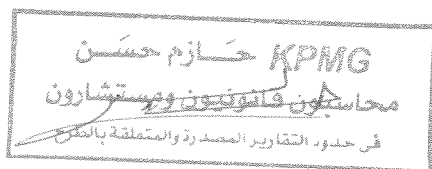 KPMG حازم حسن
محاسبون قانونيون ومستشارون
في حدود التقارير المصدرة والمتعلقة بالفرع